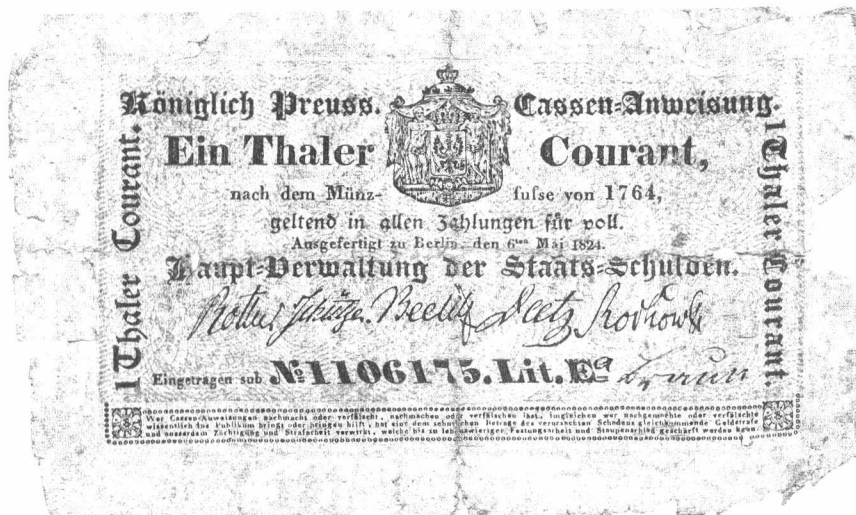 Königlich Preuss. Cassen-Anweisung.
Ein Thaler Courant,
nach dem Münz- fusse von 1764,
geltend in allen Zahlungen für voll.
Ausgefertigt zu Berlin, den 6ten Mai 1824.
Haupt-Verwaltung der Staats-Schulden.
Rother Schütze. Beelitz Deetz Rochow
Eingetragen sub No 1106175. Lit. Ea Braun
1 Thaler Courant.
1 Thaler Courant.
Wer Cassen-Anweisungen nachmacht oder verfälscht, nachmachen oder verfälschen lässt, imgleichen wer nachgemachte oder verfälschte
wissentlich ins Publikum bringt oder bringen hilft, hat eine dem zehnfachen Betrage des verursachten Schadens gleichkommende Geldstrafe
und ausserdem Züchtigung und Strafarbeit verwirkt, welche bis zu lebenswieriger Festungsarbeit und Staupenschlag geschärft werden kann.